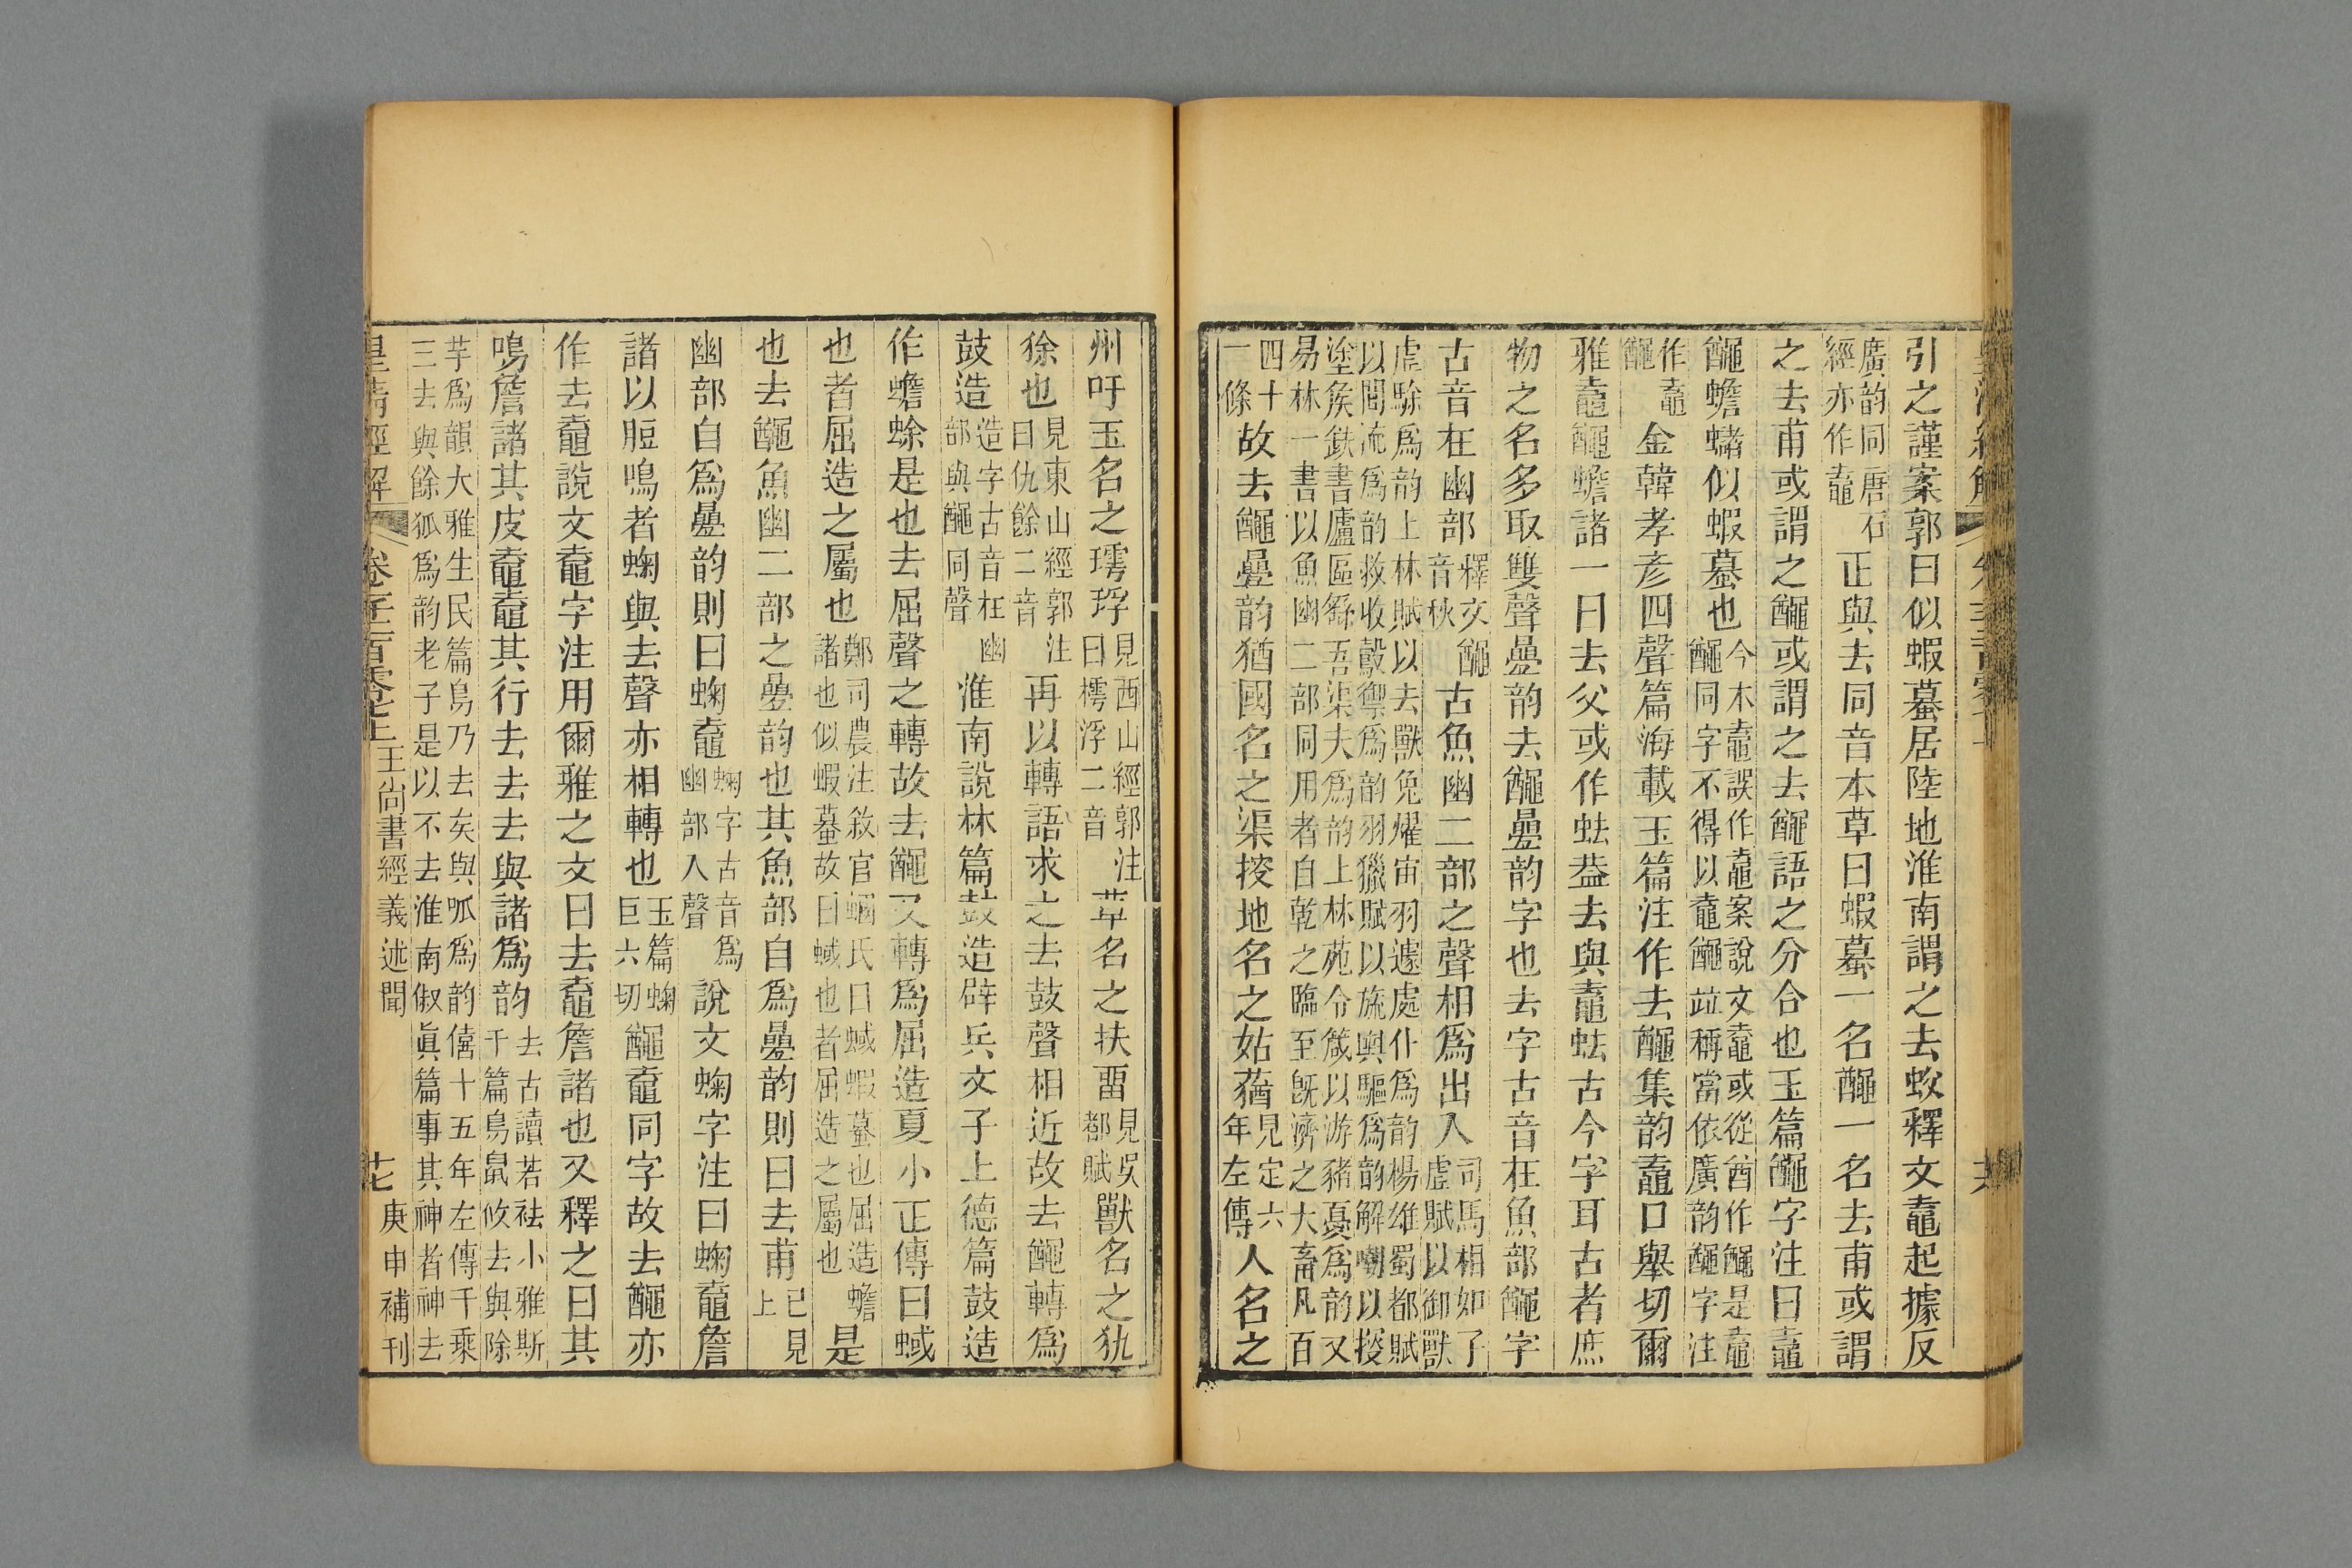 引之謹案郭曰似蝦蟇居陸地淮南謂之去蚥釋文鼁起據反
廣韵同唐石
經亦作鼁
正與去同音本草曰蝦蟇一名𪓰一名去甫或謂
之去甫或謂之𪓰或謂之去𪓰語之分合也玉篇𪓰字注曰鼁
𪓰蟾蠩似蝦蟇也
今本鼁誤作鼀案說文鼀或從酋作𪓰是鼀
𪓰同字不得以鼀𪓰竝稱當依廣韵𪓰字注
作鼁
𪓰
金韓孝彥四聲篇海載玉篇注作去𪓰集韵鼁口舉切爾
雅鼁𪓰蟾諸一曰去父或作𧉧葢去與鼁𧉧古今字耳古者庶
物之名多取雙聲疊韵去𪓰疊韵字也去字古音在魚部𪓰字
古音在幽部
釋文𪓰
音秋
古魚幽二部之聲相爲出入
司馬相如子
虛賦以御獸
虛騐爲韵上林賦以去獸兔燿宙羽遽處仆爲韵楊雄蜀都賦
以閭流爲韵救收轂禦爲韵羽獵賦以旒輿驅爲韵解嘲以投
塗矦鈇書廬區繇吾渠夫爲韵上林苑令箴以游豬憂爲韵又
易林一書以魚幽二部同用者自乾之臨至旣濟之大畜凡百
四十
一條
故去𪓰疊韵猶國名之渠搜地名之姑蕕
見定六
年左傳
人名之
州吁玉名之㻬琈
見西山經郭注
曰樗浮二音
草名之扶畱
見吳
都賦
獸名之犰
狳也
見東山經郭注
曰仇餘二音
再以轉語求之去鼓聲相近故去𪓰轉爲
鼓造
造字古音在幽
部與𪓰同聲
淮南說林篇鼓造辟兵文子上德篇鼓造
作蟾蜍是也去屈聲之轉故去𪓰又轉爲屈造夏小正傳曰蜮
也者屈造之屬也
鄭司農注敘官蟈氏曰蜮蝦蟇也屈造蟾
諸也似蝦蟇故曰蜮也者屈造之屬也
是
也去𪓰魚幽二部之疊韵也其魚部自爲疊韵則曰去甫
已見
上
幽部自爲疊韵則曰蜠鼀
字古音爲
幽部入聲
說文蜠字注曰蜠鼀詹
諸以脰鳴者蜠與去聲亦相轉也
玉篇蜠
巨六切
𪓰鼀同字故去𪓰亦
作去鼀說文鼀字注用爾雅之文曰去鼀詹諸也又釋之曰其
鳴詹諸其皮鼀鼀其行去去去與諸爲韵
去古讀若袪小雅斯
干篇鳥鼠攸去與除
芋爲韻大雅生民篇鳥乃去矣與呱爲韵僖十五年左傳千乘
三去與餘狐爲韵老子是以不去淮南俶眞篇事其神者神去
皇清經解 王尚書經義述聞 庚申補刊